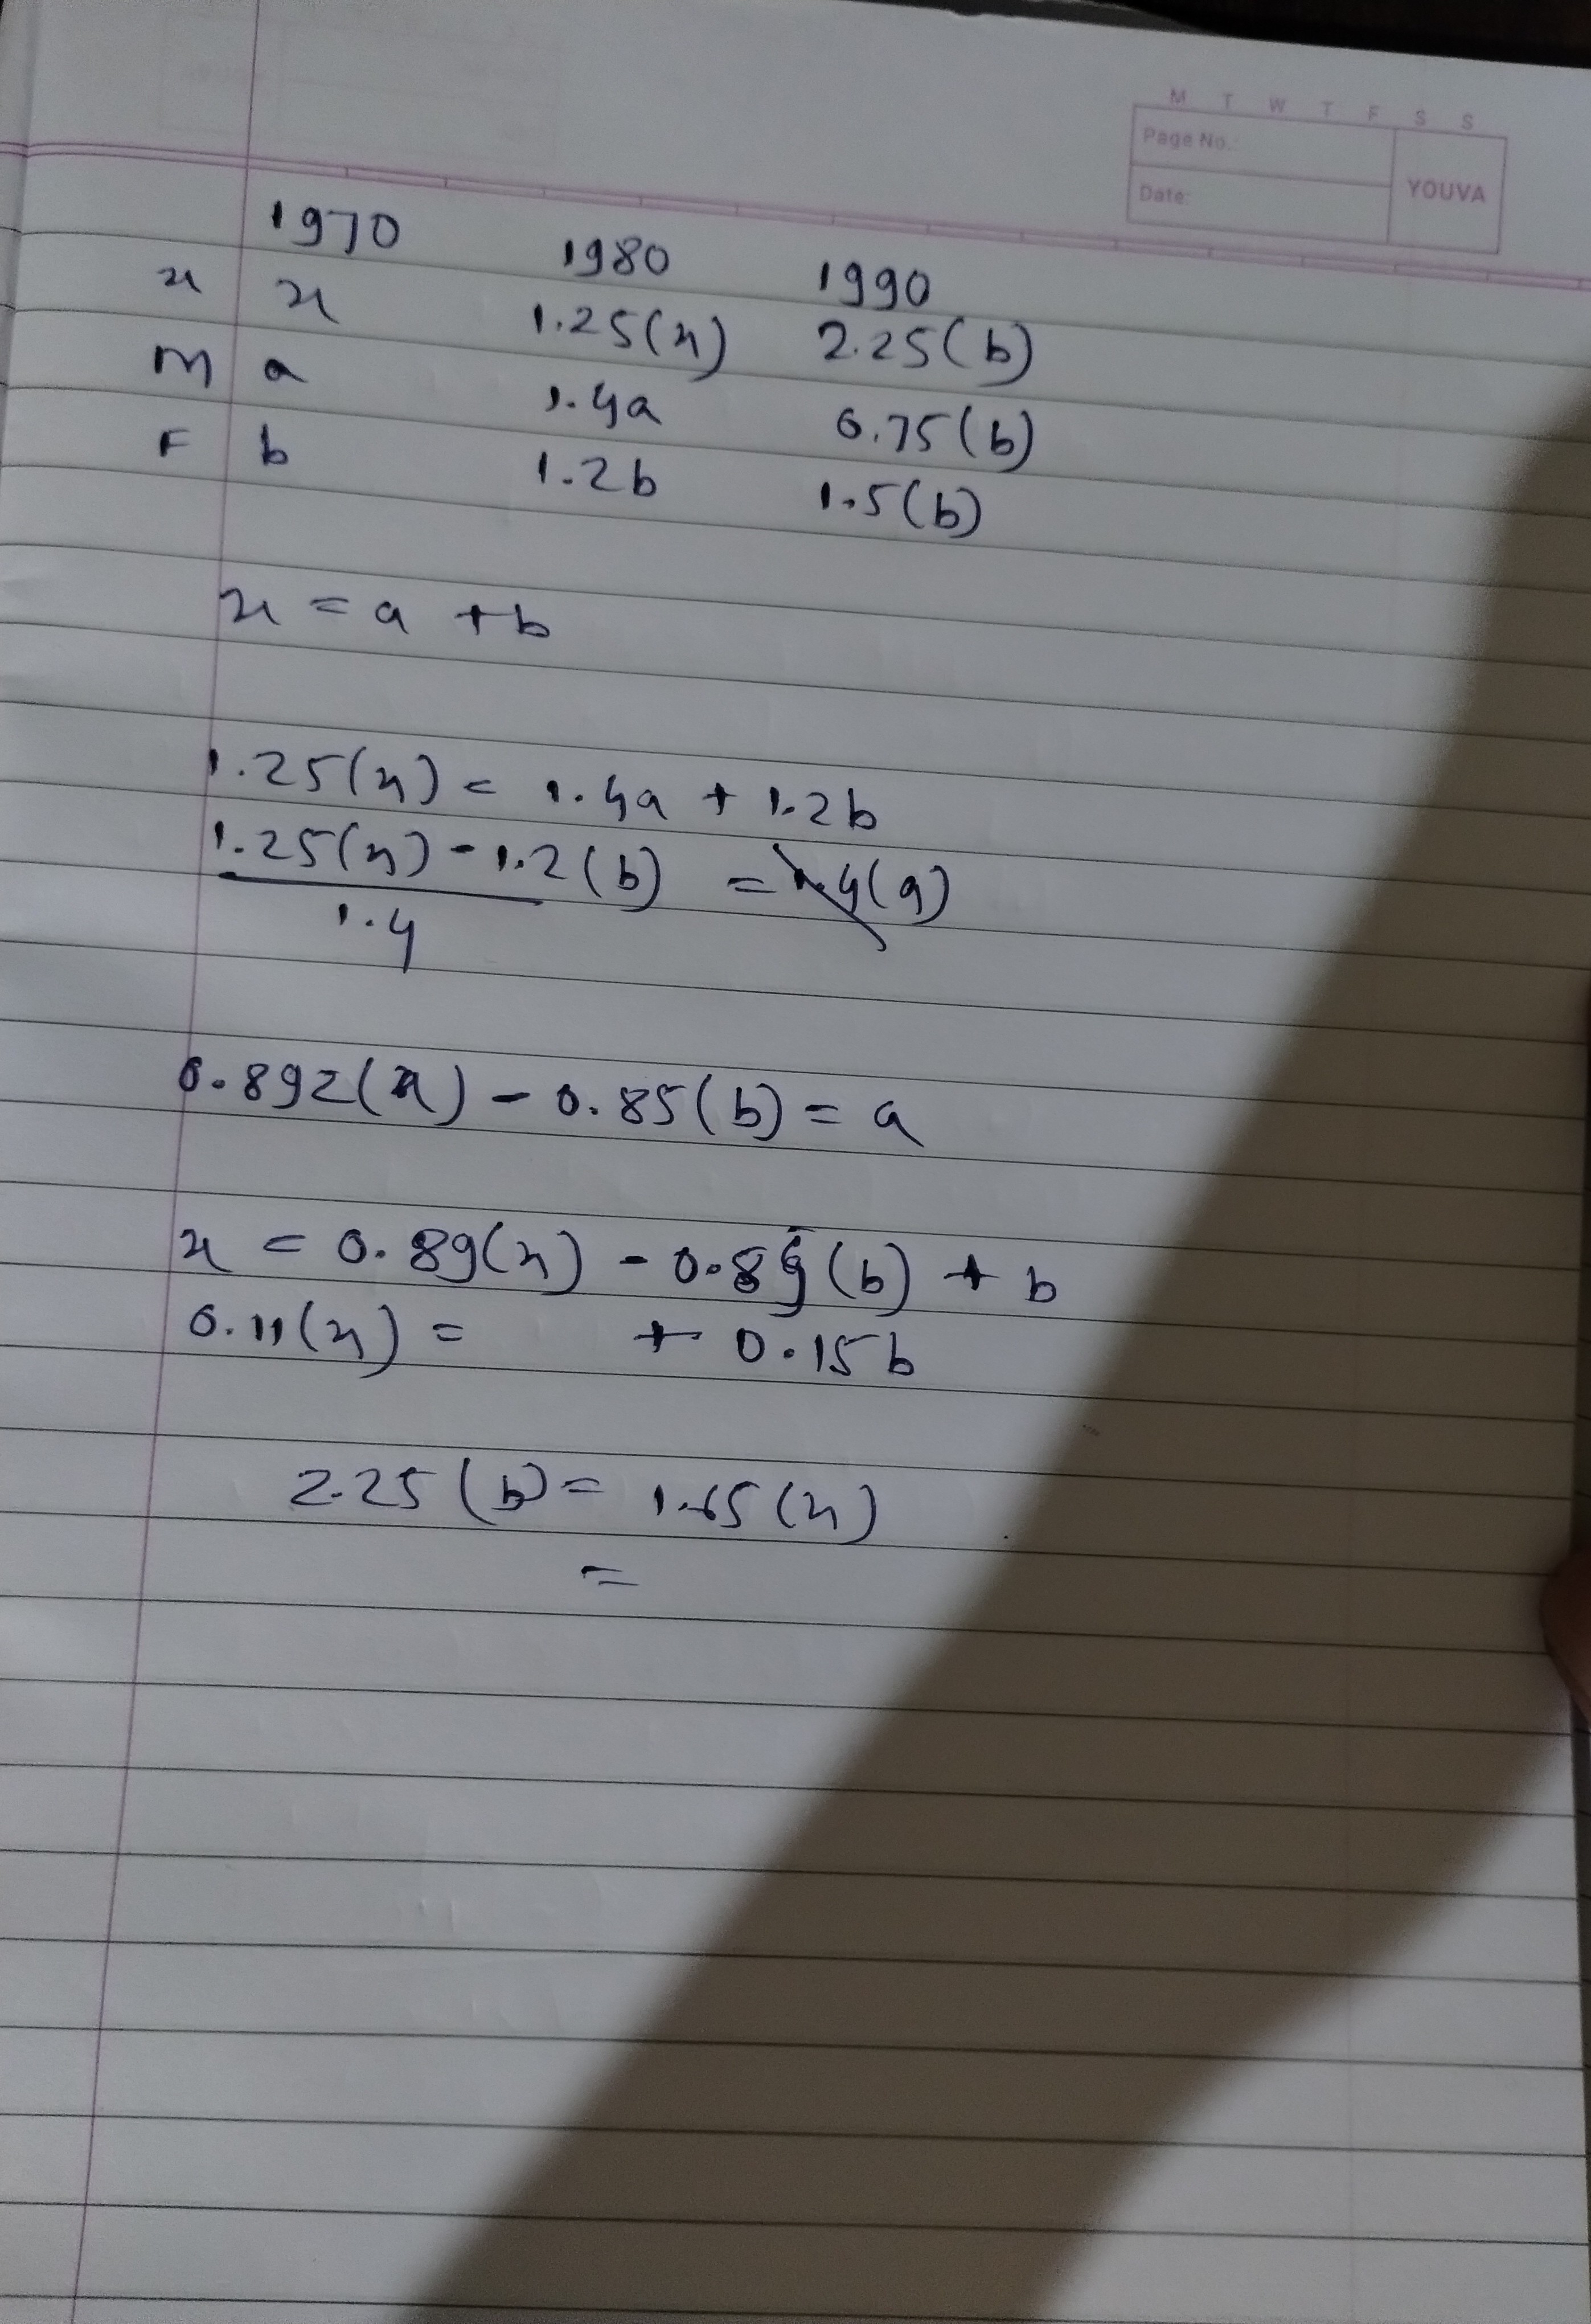 M T W T F S S
Page No.:
Date:
YOUVA
1970 1980 1990
x x 1.25(x) 2.25(b)
M a 1.4a 0.75(b)
F b 1.2b 1.5(b)
x = a + b
1.25(x) = 1.4a + 1.2b
1.25(x) - 1.2(b) = 1.4(a)
1.4
0.892(x) - 0.85(b) = a
x = 0.89(x) - 0.85(b) + b
0.11(x) = + 0.15b
2.25(b) = 1.65(x)
=